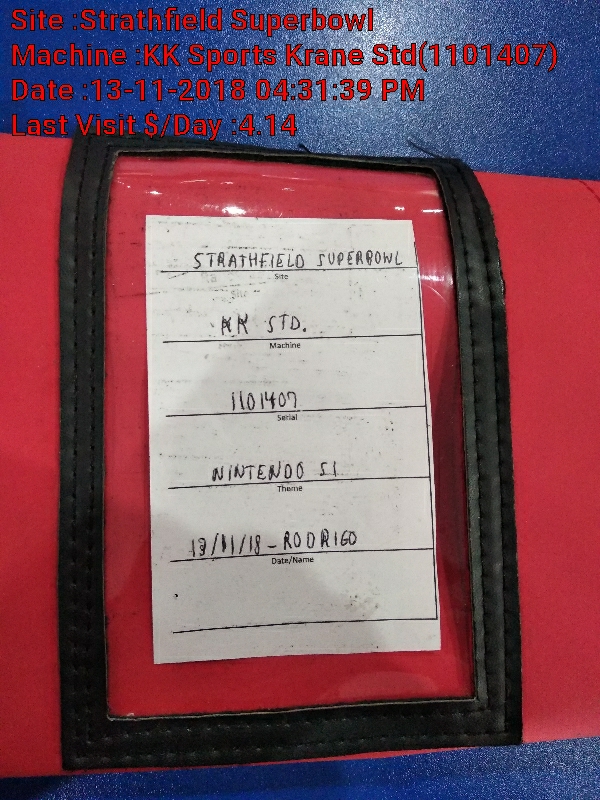 Site :Strathfield Superbowl
Machine :KK Sports Krane Std(1101407)
Date :13-11-2018 04:31:39 PM
Last Visit $/Day :4.14
STRATHFIELD SUPERBOWL
Site
KK STD.
Machine
1101407
Serial
NINTENDO S1
Theme
13/11/18 - RODRIGO
Date/Name